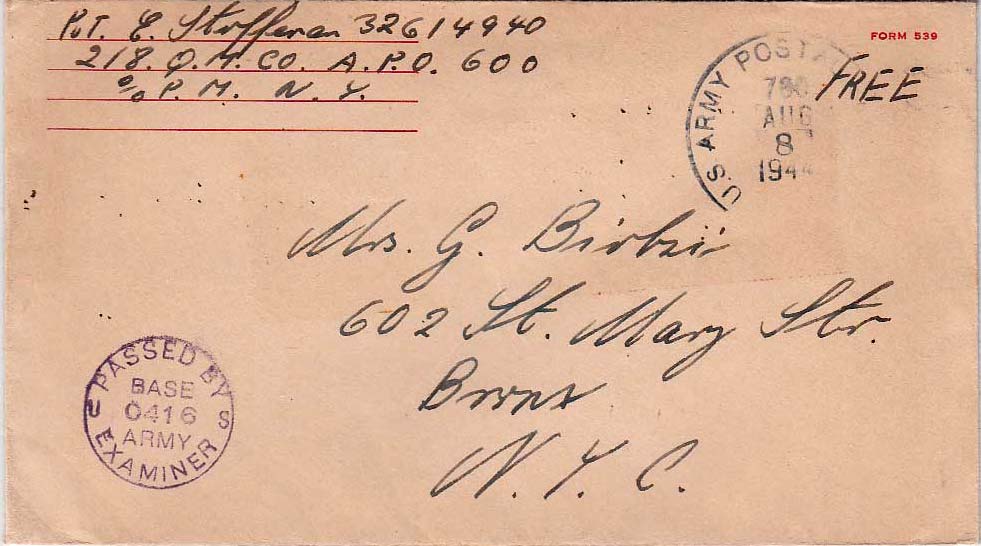 Pvt. E. Stofferan 32614940
218. Q.M. CO. A.P.O. 600
c/o P. M. N. Y.
FORM 539
FREE
U.S. ARMY POSTAL
AUG
8
1944
Mrs. G.
602 St. Mary Str.
Bronx
N. Y. C.
PASSED BY
BASE
0416
ARMY
U S
EXAMINER